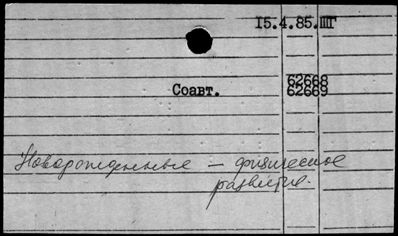 15.4.85.ШГ
62668
Соавт. 62669
Новорожденные – физическое
развитие.